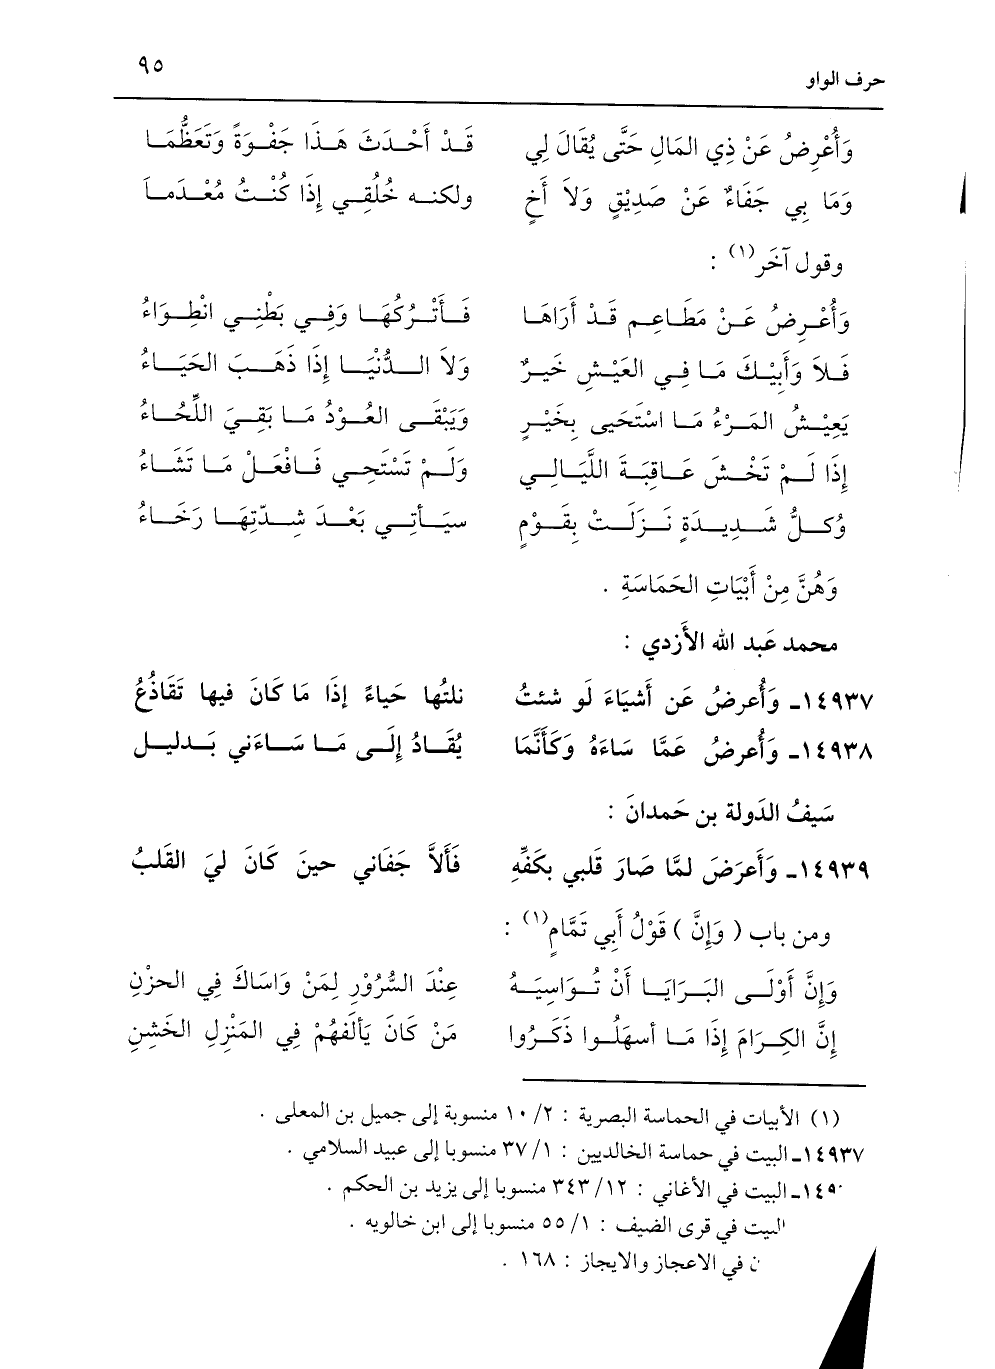 حرف الواو ٩٥
وَأُعْرِضُ عَنْ ذِي المَالِ حَتَّى يُقَالَ لِي قَدْ أَحْدَثَ هَذَا جَفْوَةً وَتَعَظُّمَا
وَمَا بِي جَفَاءٌ عَنْ صَدِيْقٍ وَلاَ أَخٍ ولكنه خُلُقِي إِذَا كُنْتُ مُعْدَمَا
وقول آخَر(١) :
وَأُعْرِضُ عَنْ مَطَاعِمِ قَدْ أَرَاهَا فَأَتْرُكُهَا وَفِي بَطْنِي انْطِوَاءُ
فَلاَ وَأَبِيْكَ مَا فِي العَيْشِ خَيرٌ وَلاَ الدُّنْيَا إِذَا ذَهَبَ الحَيَاءُ
يَعِيْشُ المَرْءُ مَا اسْتَحَيى بِخَيْرٍ وَيَبْقَى العُوْدُ مَا بَقِيَ اللِّحُاءُ
إِذَا لَمْ تَخْشَ عَاقِبَةَ اللَّيَالِي وَلَمْ تَسْتَحِي فَافْعَلْ مَا تَشَاءُ
وُكلُّ شَدِيدَةٍ نَزَلَتْ بِقَوْمٍ سيَأتِي بَعْدَ شِدّتِهَا رَخَاءُ
وَهُنَّ مِنْ أَبْيَاتِ الحَمَاسَةِ .
محمد عَبد الله الأَزدي :
١٤٩٣٧ـ وَأُعرضُ عَن أَشيَاءَ لَو شئتُ نلتُها حَياءً إِذَا مَا كَانَ فيها تَقَاذُعُ
١٤٩٣٨ـ وَأُعرضُ عَمَّا سَاءَهُ وَكَأَنَّمَا يُقَادُ إِلَى مَا سَاءَني بَدليل
سَيفُ الدَولة بن حَمدانَ :
١٤٩٣٩ـ وَأَعرَضَ لمَّا صَارَ قَلبي بكَفِّهِ فَأَلاَّ جَفَاني حينَ كَانَ ليَ القَلبُ
ومن باب ( وَإِنَّ ) قَوْلُ أَبِي تَمَّامٍ(١) :
وَإِنَّ أَوْلَى البَرَايَا أَنْ تُوَاسِيَهُ عِنْدَ السُّرُوْرِ لِمَنْ وَاسَاكَ فِي الحزْنِ
إِنَّ الكِرَامَ إِذَا مَا أسهَلُوا ذَكَرُوا مَنْ كَانَ يَألَفهُمْ فِي المَنْزِلِ الخَشِنِ
(١) الأبيات في الحماسة البصرية : ٢/ ١٠ منسوبة إلى جميل بن المعلى .
١٤٩٣٧ـ البيت في حماسة الخالديين : ١/ ٣٧ منسوبا إلى عبيد السلامي .
١٤٩ـ البيت في الأغاني : ١٢/ ٣٤٣ منسوبا إلى يزيد بن الحكم .
البيت في قرى الضيف : ١/ ٥٥ منسوبا إلى ابن خالويه .
في الاعجاز والايجاز : ١٦٨ .